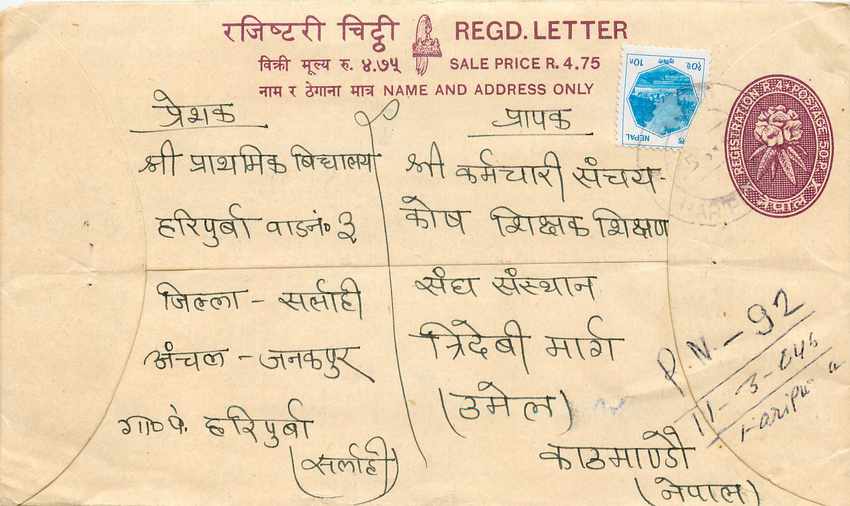 रजिष्टरी चिट्ठी REGD. LETTER
विक्री मूल्य रु. ४.७५ SALE PRICE R. 4.75
नाम र ठेगाना मात्र NAME AND ADDRESS ONLY
REGISTRATION R.4. POSTAGE 75P
नेपाल
NEPAL
10P
प्रेशक
श्री प्राथमिक बिद्यालय
हरिपुर्बा वाडनं० ३
जिल्ला - सर्लाही
अंचल - जनकपुर
गा०पं. हरिपुर्बा
(सर्लाही)
प्रापक
श्री कर्मचारी संचय-
कोष शिक्षक शिक्षण
संघ संस्थान
त्रिदेबी मार्ग
(उमेल)
काठमाण्डौ
(नेपाल)
P.N. - 92
11-3-045